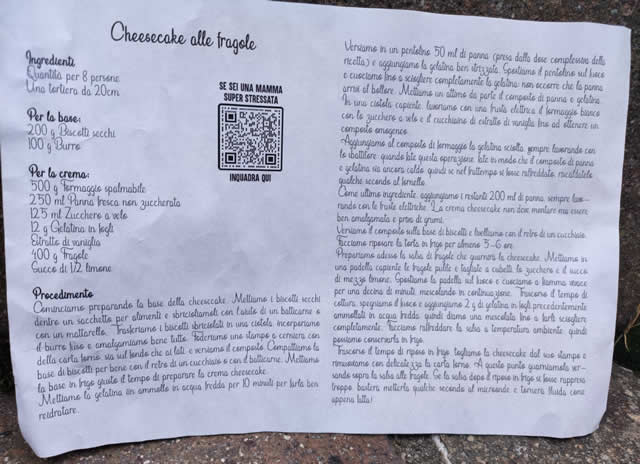 Cheesecake alle fragole
Ingredienti
Quantità per 8 persone
Una tortiera da 20cm
Per la base:
200 g Biscotti secchi
100 g Burro
Per la crema:
500 g Formaggio spalmabile
250 ml Panna fresca non zuccherata
125 ml Zucchero a velo
12 g Gelatina in fogli
Estratto di vaniglia
400 g Fragole
Succo di 1/2 limone
SE SEI UNA MAMMA
SUPER STRESSATA
INQUADRA QUI
Procedimento
Cominciamo preparando la base della cheesecake. Mettiamo i biscotti secchi
dentro un sacchetto per alimenti e sbricioliamoli con l'aiuto di un batticarne o
con un mattarello. Trasferiamo i biscotti sbriciolati in una ciotola, incorporiamo
il burro fuso e amalgamiamo bene tutto. Foderiamo uno stampo a cerniera con
della carta forno, sia sul fondo che ai lati e versiamo il composto. Compattiamo la
base di biscotti per bene con il retro di un cucchiaio o con il batticarne. Mettiamo
la base in frigo giusto il tempo di preparare la crema cheesecake.
Mettiamo la gelatina in ammollo in acqua fredda per 10 minuti per farla ben
reidratare.
Versiamo in un pentolino 50 ml di panna (presa dalla dose complessiva della
ricetta) e aggiungiamo la gelatina ben strizzata. Spostiamo il pentolino sul fuoco
e cuociamo fino a sciogliere completamente la gelatina: non occorre che la panna
arrivi al bollore. Mettiamo un attimo da parte il composto di panna e gelatina.
In una ciotola capiente, lavoriamo con una frusta elettrica il formaggio bianco
con lo zucchero a velo e il cucchiaino di estratto di vaniglia fino ad ottenere un
composto omogeneo.
Aggiungiamo al composto di formaggio la gelatina sciolta, sempre lavorando con
lo sbattitore: quando fate questa operazione, fate in modo che il composto di panna
e gelatina sia ancora caldo, quindi se nel frattempo si fosse raffreddato, riscaldatelo
qualche secondo al fornello.
Come ultimo ingrediente, aggiungiamo i restanti 200 ml di panna, sempre lavo-
rando con le fruste elettriche. La crema cheesecake non deve montare ma essere
ben amalgamata e priva di grumi.
Versiamo il composto sulla base di biscotti e livelliamo con il retro di un cucchiaio.
Facciamo riposare la torta in frigo per almeno 5-6 ore.
Prepariamo adesso la salsa di fragole che guarnirà la cheesecake. Mettiamo in
una padella capiente le fragole pulite e tagliate a cubetti, lo zucchero e il succo
di mezzo limone. Spostiamo la padella sul fuoco e cuociamo a fiamma vivace
per una decina di minuti, mescolando in continuazione. Trascorso il tempo di
cottura, spegniamo il fuoco e aggiungiamo 2 g di gelatina in fogli precedentemente
ammollati in acqua fredda, quindi diamo una mescolata fino a farli sciogliere
completamente. Facciamo raffreddare la salsa a temperatura ambiente, quindi
possiamo conservarla in frigo.
Trascorso il tempo di riposo in frigo, togliamo la cheesecake dal suo stampo e
rimuoviamo con delicatezza la carta forno. A questo punto guarniamola ver-
sando sopra la salsa alle fragole. Se la salsa dopo il riposo in frigo si fosse rappresa
troppo, basterà metterla qualche secondo al microonde e tornerà fluida come
appena fatta!